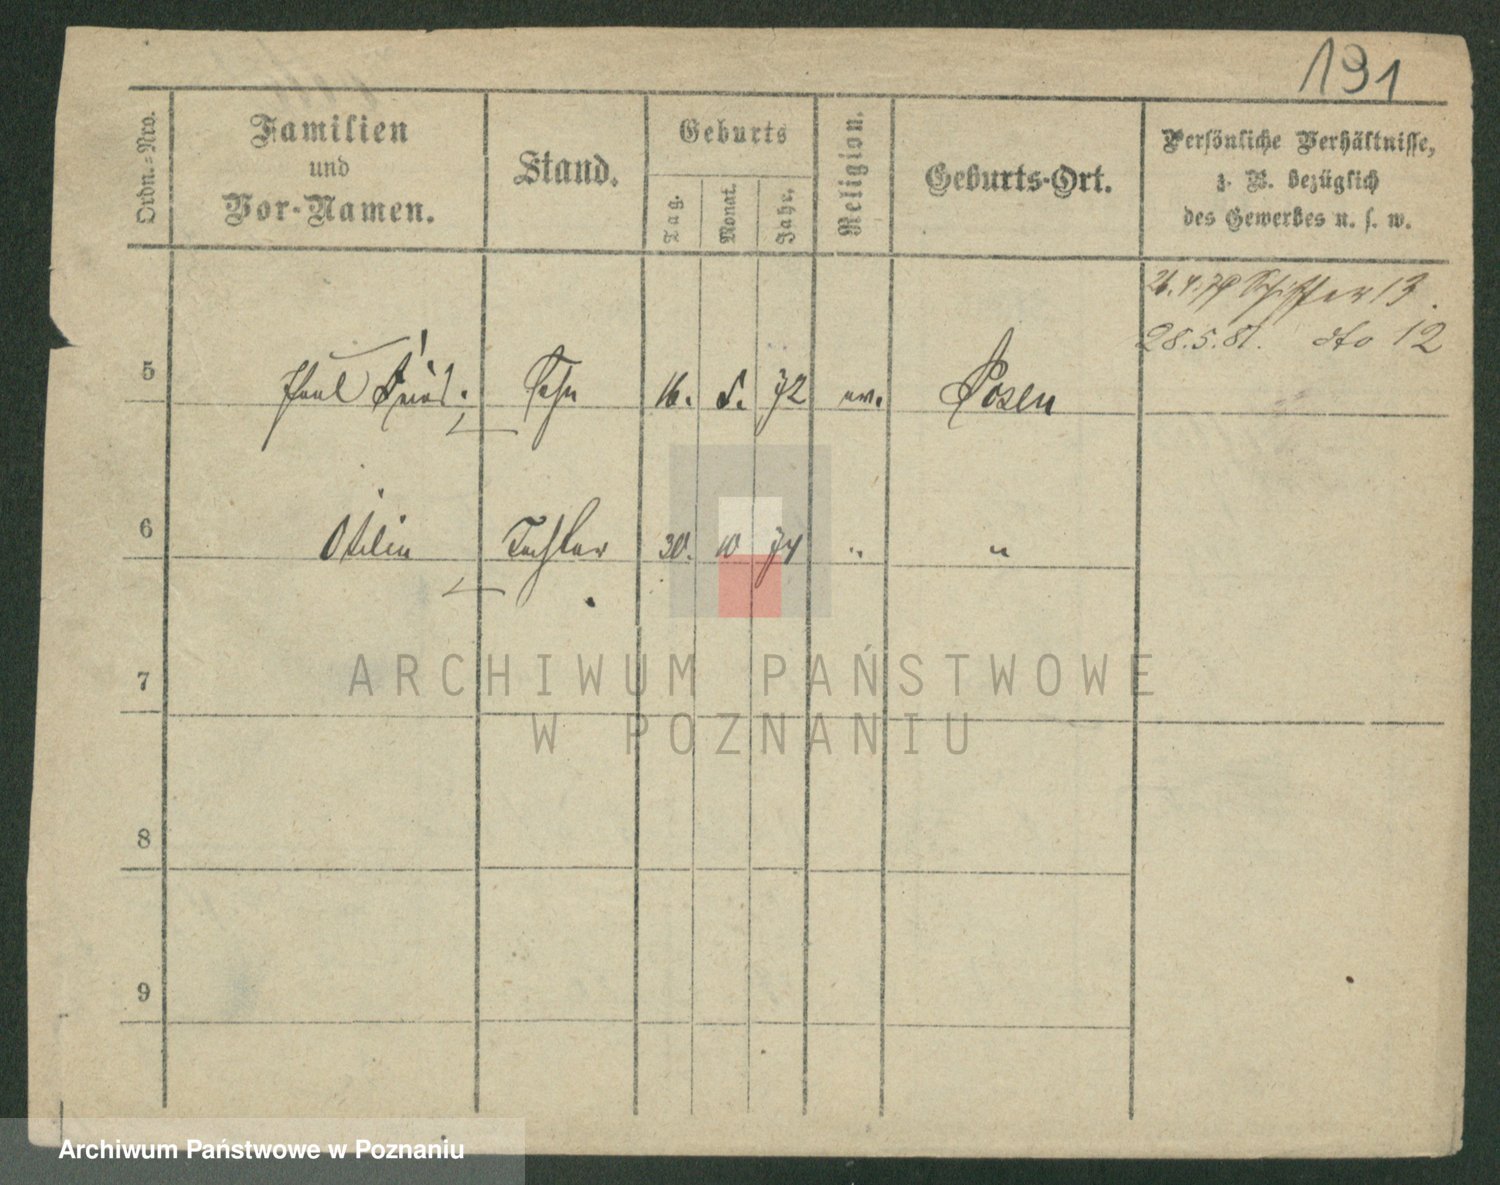 191
Ordn.-Nro.
Familien
und
Vor-Namen.
Stand.
Geburts
Tag.
Monat.
Jahr.
Religion.
Geburts-Ort.
Persönliche Verhältnisse,
z. B. bezüglich
des Gewerbes u. s. w.
26.4.79 Schiffer 13.
28.5.81. dto 12
5 Paul Sohn 16. 5. 72 ev. Posen
6 Otilie Tochter 30. 10 74 " "
7
8
9
ARCHIWUM PAŃSTWOWE
W POZNANIU
Archiwum Państwowe w Poznaniu